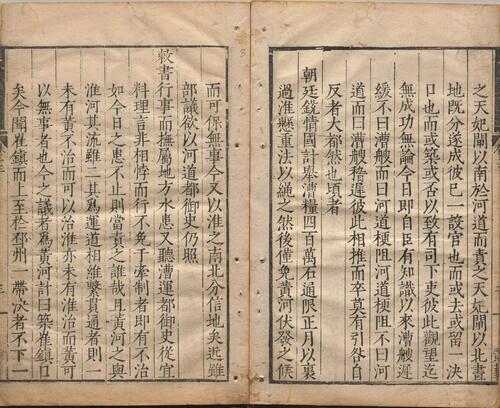 之天妃閘以南於河道而責之天妃閘以北畫
地既分遂成彼已一設官也而或去或留一決
口也而或築或否以致有司下吏彼此觀望迄
無成功無論今日即自臣有知識以來漕艘遲
緩不曰漕艘而曰河道梗阻河道梗阻不曰河
道而曰漕艘稽遲彼此相推而卒莫有引咎自
反者大都然也頃者
朝廷銳情國計舉漕糧四百萬石通限正月以裏
過淮懸重法以繩之然後僅免黃河伏發之候
而可保無事今又以淮之南北分信地矣近雖
部議欲以河道都御史仍照
敕書行事而撫屬地方水患又聽漕運都御史從宜
料理言非相悖而行不免于牽制者即有不治
如今日之患不止則當責之誰哉且黃河之與
淮河其流雖二其爲運道相維繫貫通者則一
未有黃不治而可以治淮亦未有淮治而黃可
以無事者也今之議者爲黃河計曰築崔鎮口
矣今聞崔鎮而上至於邳州一帶決者不下一